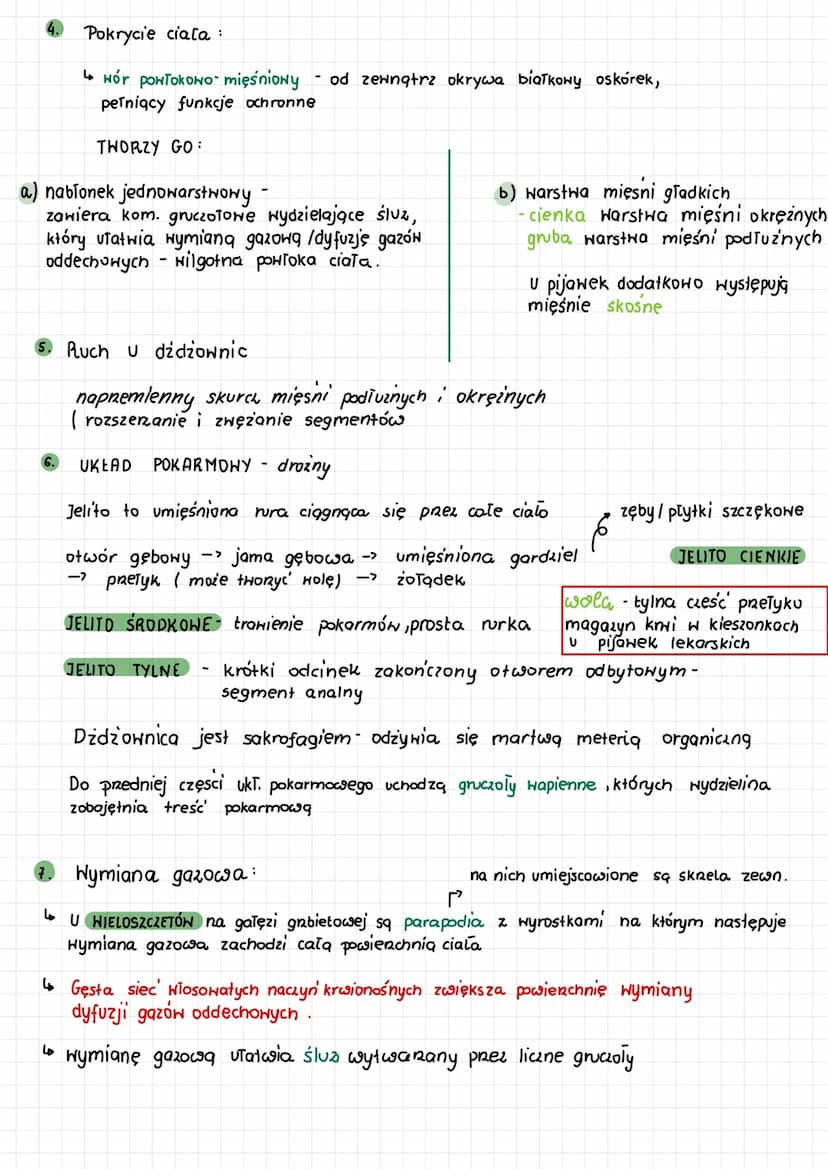 4. Pokrycie ciała :
↳ wór powłokowo-mięśniowy - od zewnątrz okrywa białkowy oskórek,
pełniący funkcje ochronne
TWORZY GO :
a) nabłonek jednowarstwowy -
zawiera kom. gruczołowe wydzielające śluz,
który ułatwia wymianą gazową /dyfuzję gazów
oddechowych - wilgotna powłoka ciała.
b) warstwa mięsni gładkich
- cienka warstwa mięśni okrężnych
gruba warstwa mięśni podłużnych
U pijawek dodatkowo występują
mięśnie skośne
5. Ruch u dżdżownic
naprzemienny skurcz mięśni podłużnych i okrężnych
( rozszerzanie i zwężanie segmentów
6. UKŁAD POKARMOWY - drożny
Jelito to umięśniona rura ciągnąca się przez całe ciało
zęby / płytki szczękowe
otwór gębowy -> jama gębowa -> umięśniona gardziel
JELITO CIENKIE
-> przełyk ( może tworzyć wole) -> żołądek
wola - tylna cześć przełyku
magazyn krwi w kieszonkach
u pijawek lekarskich
JELITO ŚRODKOWE - trawienie pokarmów, prosta rurka
JELITO TYLNE - krótki odcinek zakończony otworem odbytowym -
segment analny
Dżdżownica jest sakrofagiem - odżywia się martwą meterią organiczną
Do przedniej części ukł. pokarmowego uchodzą gruczoły wapienne, których wydzielina
zobojętnia treść pokarmową
7. Wymiana gazowa :
na nich umiejscowione są skrzela zewn.
↳ U WIELOSZCZETÓW na gałęzi grzbietowej są parapodia z wyrostkami na którym następuje
wymiana gazowa zachodzi całą powierzchnią ciała
↳ Gęsta sieć włosowatych naczyń krwionośnych zwiększa powierzchnię wymiany
dyfuzji gązów oddechowych .
↳ wymianę gazową ułatwia śluz wytwarzany przez liczne gruczoły